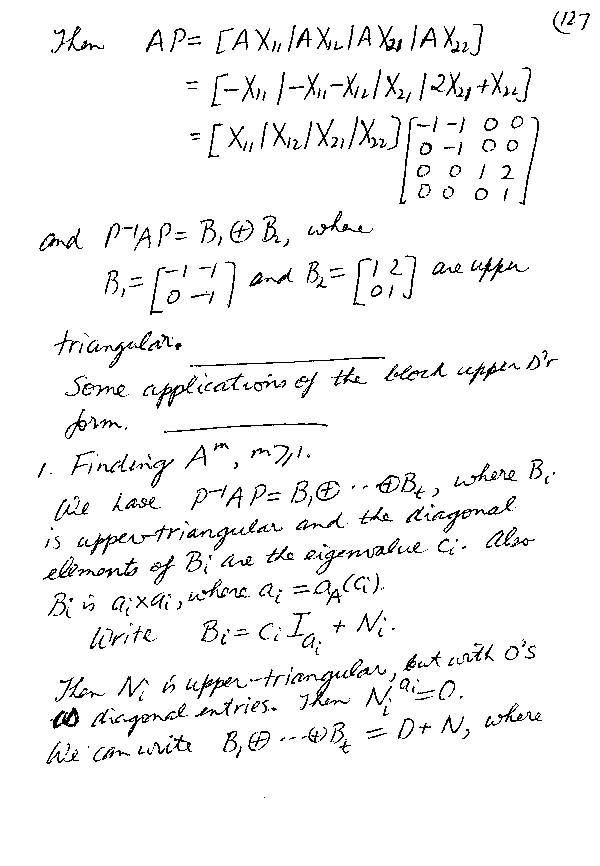 (127
Then AP = [AX₁₁|AX₁₂|AX₂₁|AX₂₂]
= [-X₁₁|-X₁₁-X₁₂|X₂₁|2X₂₁+X₂₂]
= [X₁₁|X₁₂|X₂₁|X₂₂] [-1 -1 0 0
0 -1 0 0
0 0 1 2
0 0 0 1]
and P⁻¹AP = B₁ ⊕ B₂, where
B₁ = [-1 -1
0 -1] and B₂ = [1 2
0 1] are upper
triangular.
Some applications of the block upper Δ'r
form.
1. Finding Aᵐ, m≥1.
We have P⁻¹AP = B₁⊕ ··· ⊕Bₜ, where Bᵢ
is upper-triangular and the diagonal
elements of Bᵢ are the eigenvalue cᵢ. Also
Bᵢ is aᵢ×aᵢ, where aᵢ = a_A(cᵢ).
Write Bᵢ = cᵢ I_{aᵢ} + Nᵢ.
Then Nᵢ is upper-triangular, but with 0's
as diagonal entries. Then Nᵢ^{aᵢ} = 0.
We can write B₁⊕ ··· ⊕Bₜ = D + N, where